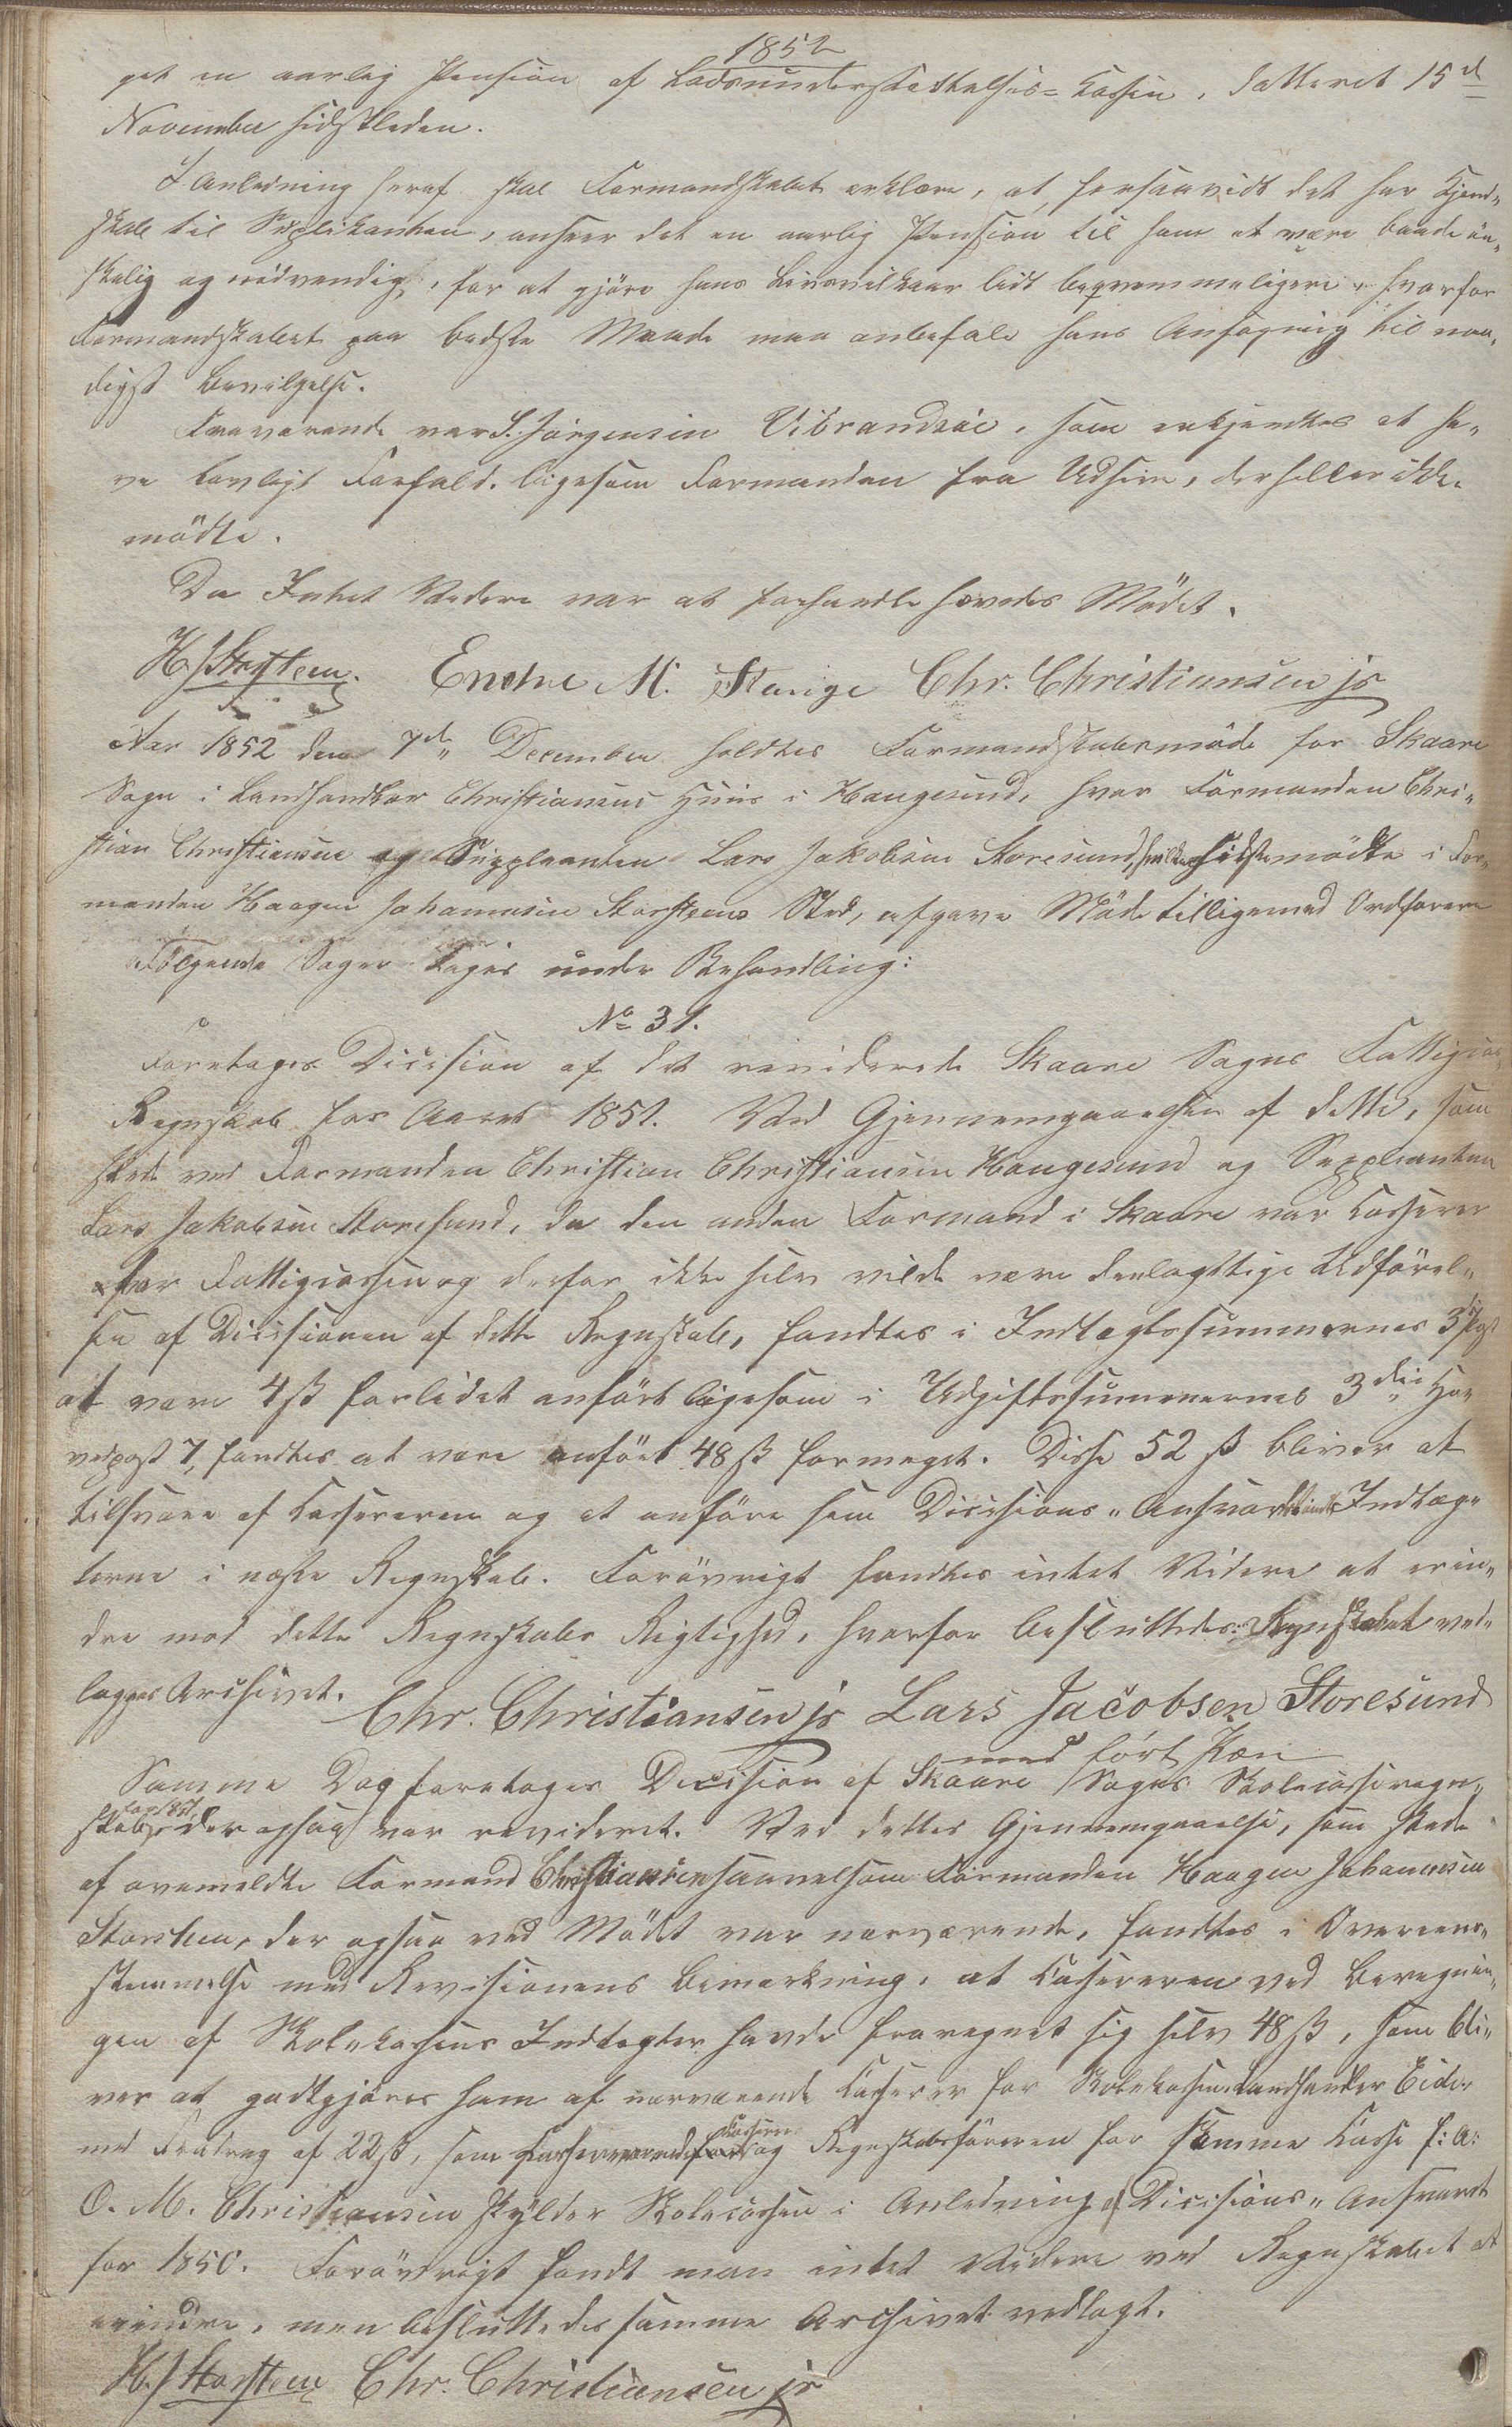 1852
get en aarlig Pension af Lodsunderstøttelses-Kassen, datteret 15de
November sidstleden.
I Anledning heraf skal Formandskabet erklære, at, forsaavidt det har Kjend„
skab til Suplikanten, anseer det en aarlig Pension til ham at være baade ön„
skelig og nödvendig, for at gjöre hans Livsvilkaar lidt beqvemmeligere, hvorfor
Formandskabet paa bedste Maade maa anbefale hans Ansögning til naa„
digst Bevilgelse.
Fraværende var S. Jörgensen Vibrandsöe, som erkjendtes at ha„
ve lovligt Forfald, ligesom Formanden fra Udsire, der heller ikke
mödte.
Da Intet Videre var at forhandle hævedes Mödet.
H. J. Storsteen. Endre M. Stange Chr. Christiansen jr
Aar 1852 den 7de December holdtes Formandskabsmöde for Skaare
Sogn i Landhandler Christiansens Huus i Haugesund, hvor Formanden Chri„
stian Christiansen og Suppleanten Lars Jakobsen Storesund, hvilken sidste mödte i For„
manden Haagen Johannesen Storsteens Sted, afgave Möde tilligemed Ordförere
Fölgende Sager toges under Behandling:
No 31.
Foretoges Decision af det reviderede Skaare Sogns Fattigcasse
Regnskab for Aaret 1851. Ved Gjennemgaaelsen af dette, som
skede ved Formanden Christian Christiansen Haugesund og Suppleanten
Lars Jakobsen Storesund, da den anden Formand i Skaare var Casserer
for Fattigcassen og derfor ikke selv vilde være deelagtig i Udförel„
sen af Decisionen af dette Regnskab, fandtes i Indtægtssummernes 3die Post
at være 4 ß forlidet anfört ligesom i Udgiftssummernes 3die Ho„
vedpost 7, fandtes at være anfört 48 ß formeget. Disse 52 ß bliver at
tilsvare af Cassereren og at anföre som Decisions„Ansvar blandt Indtæg„
terne i næste Regnskab. Forövrigt fandtes intet Videre at erin„
dre mod dette Regnskabs Rigtighed, hvorfor besluttedes: Regnskabet ved„
lægges Archivet.
Chr. Christiansen jr Lars Jacobsen Storesund
med fört Pen
Samme Dag foretoges Decision af Skaare Sogns Skolecasseregn„
skab for 1851, der ogsaa var revideret. Ved dettes Gjennemgaaelse, som skede
af ovenmeldte Formand Christiansen saavelsom Formanden Haagen Johannesen
Storsteen, der ogsaa ved Mödet var nærværende, fandtes i Overeens„
stemmelse med Revisionens Bemærkning, at Cassereren ved Beregnin„
gen af Skolekassens Indtægter havde fraregnet sig selv 48 ß, som bli„
ver at godtgjöres ham af nærværende Casserer for Skolekassen Landhandler Eide,
med Fradrag af 22 ß, som Casserer og Regnskabsföreren for samme Casse f: A:
O. M. Christiansen skylder Skolecassen i Anledning af Decisions„Ansvaret
for 1850. Forövrigt fandt man intet Videre ved Regnskabet at
erindre, men besluttedes samme Archivet vedlagt.
H. J. Storsteen Chr. Christiansen jr